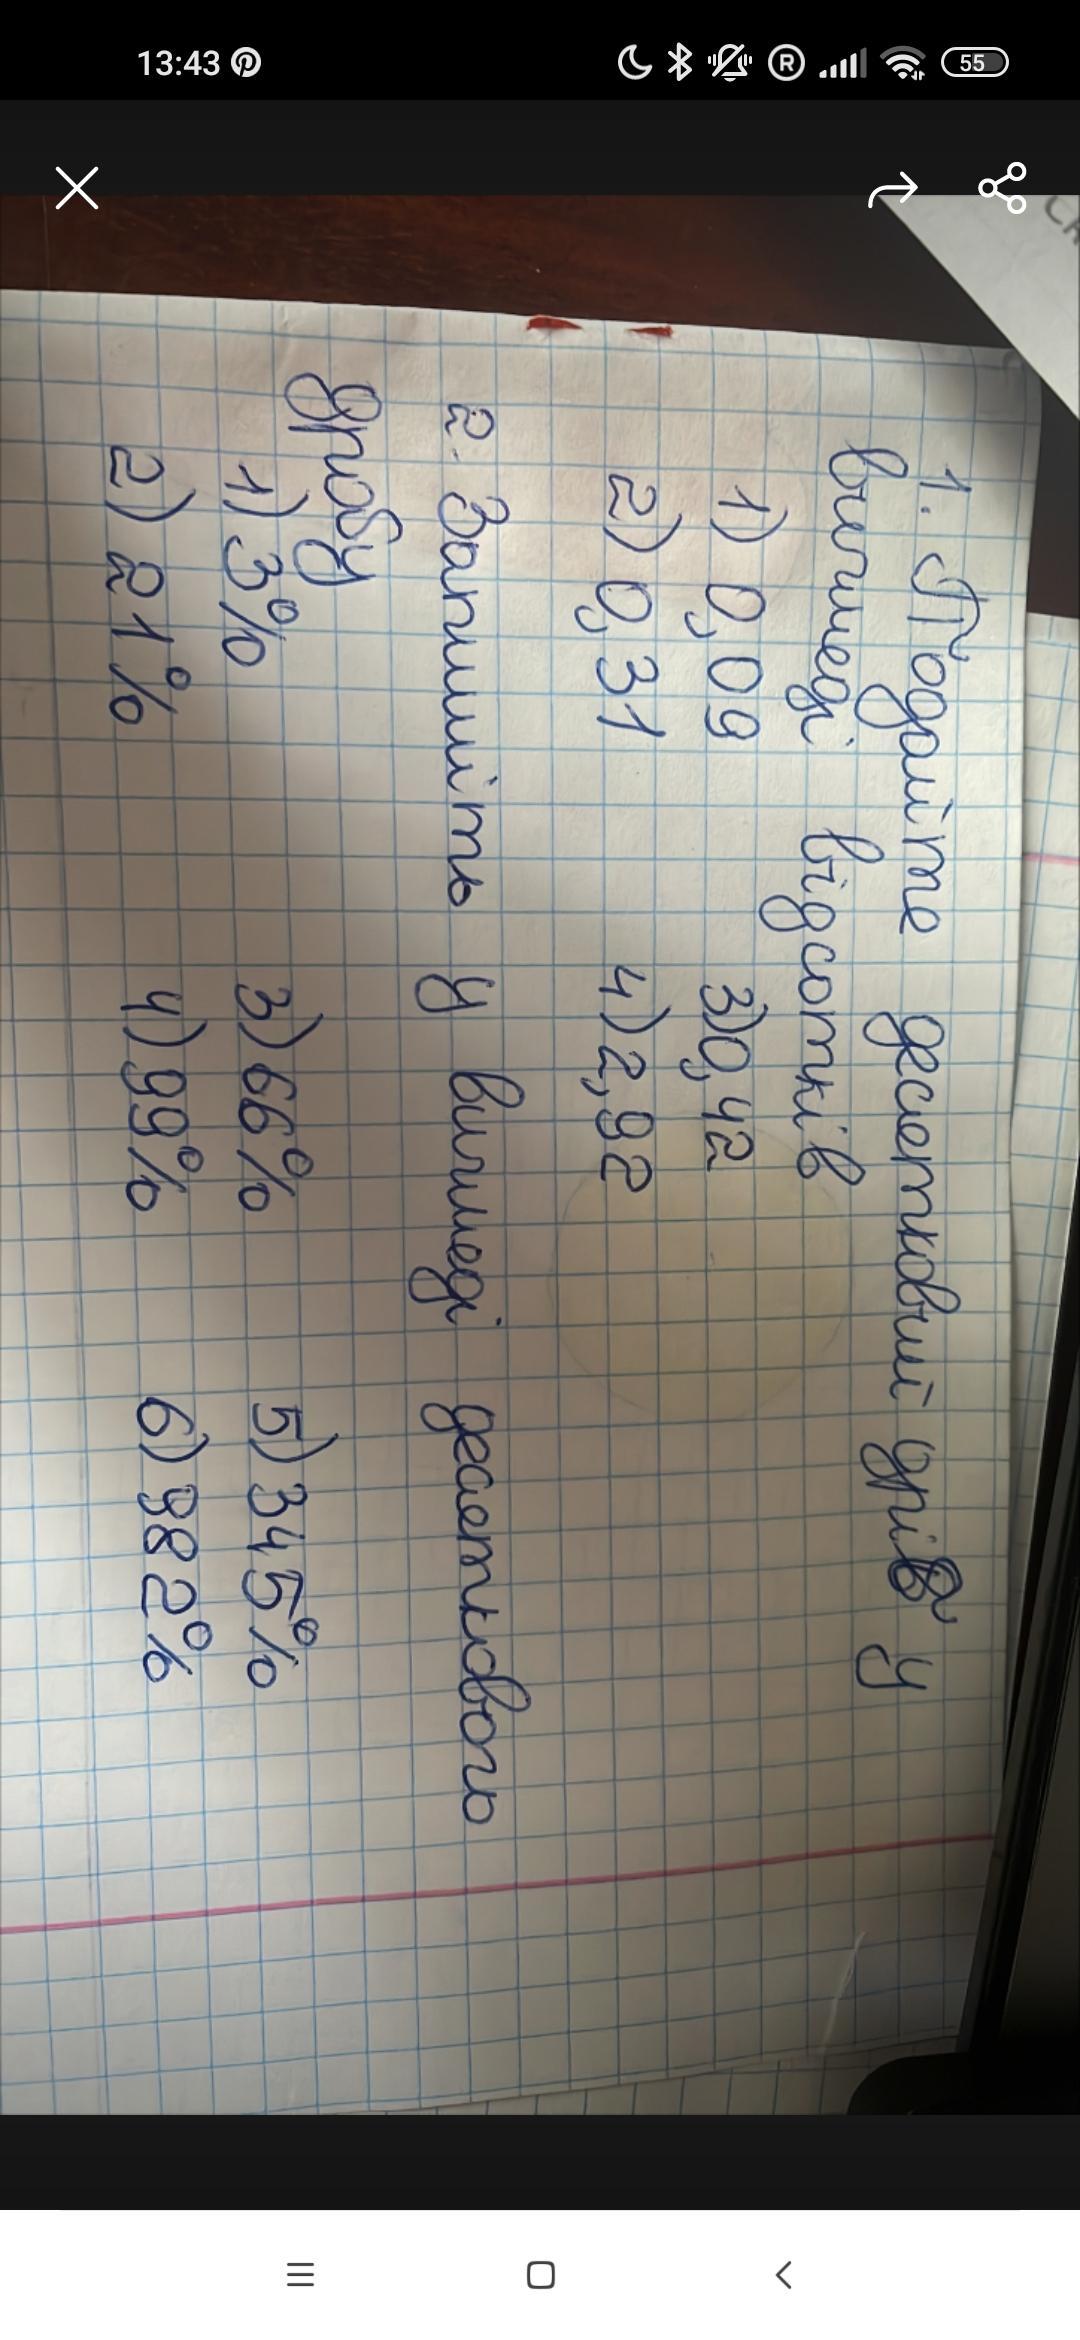 13:43
55
1. Подайте десятковий дріб у
вигляді відсотків
1) 0,09 3) 0,42
2) 0,31 4) 2,92
2. Запишіть у вигляді десяткового
дробу
1) 3% 3) 66% 5) 345%
2) 21% 4) 99% 6) 982%